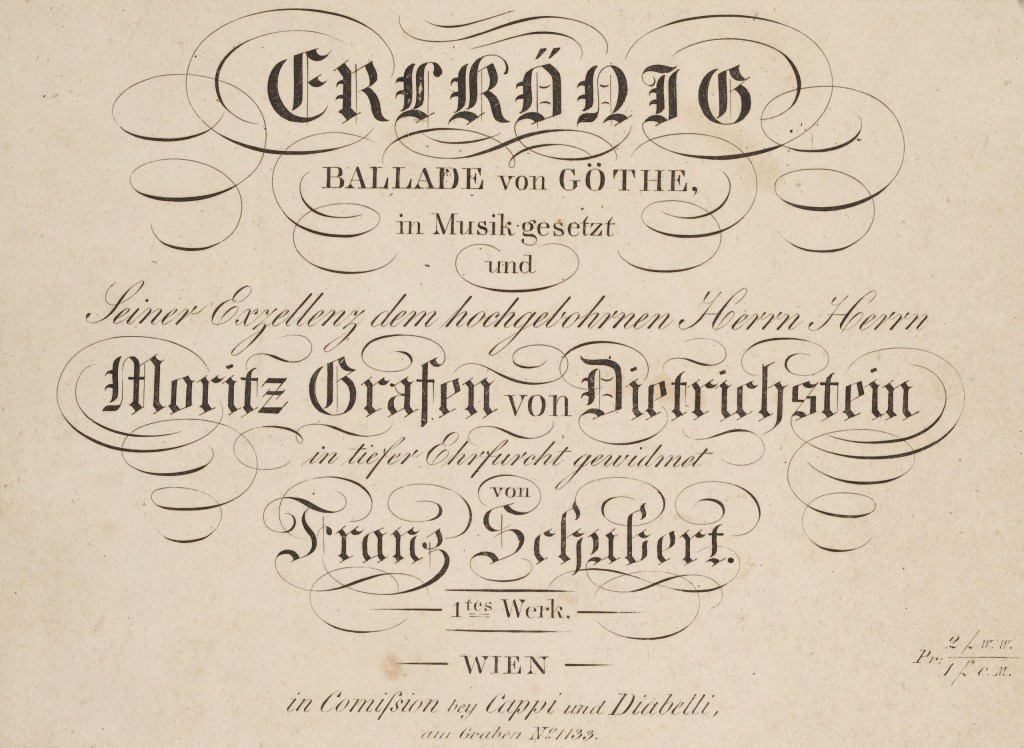 ERLKÖNIG
BALLADE von GÖTHE,
in Musik gesetzt
und
Seiner Exzellenz dem hochgebohrnen Herrn Herrn
Moritz Grafen von Dietrichstein
in tiefer Ehrfurcht gewidmet
von
Franz Schubert.
1tes Werk.
WIEN
Pr: 2 f. W. W.
1 f. C. M.
in Comiſsion bey Cappi und Diabelli,
am Graben No. 1133.